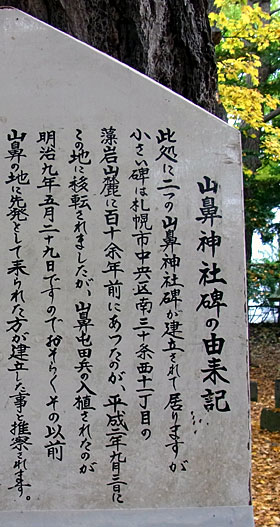 山鼻神社碑の由来記
此処に二つの山鼻神社碑が建立されて居りますが
小さい碑は札幌市中央区南三十条西十一丁目の
藻岩山麓に百十余年前にあつたのが、平成二年九月三日に
この地に移転されましたが、山鼻屯田兵の入植されたのが
明治九年五月二十九日ですのでおそらくその以前
山鼻の地に先発として来られた方が建立した事と推察されます。